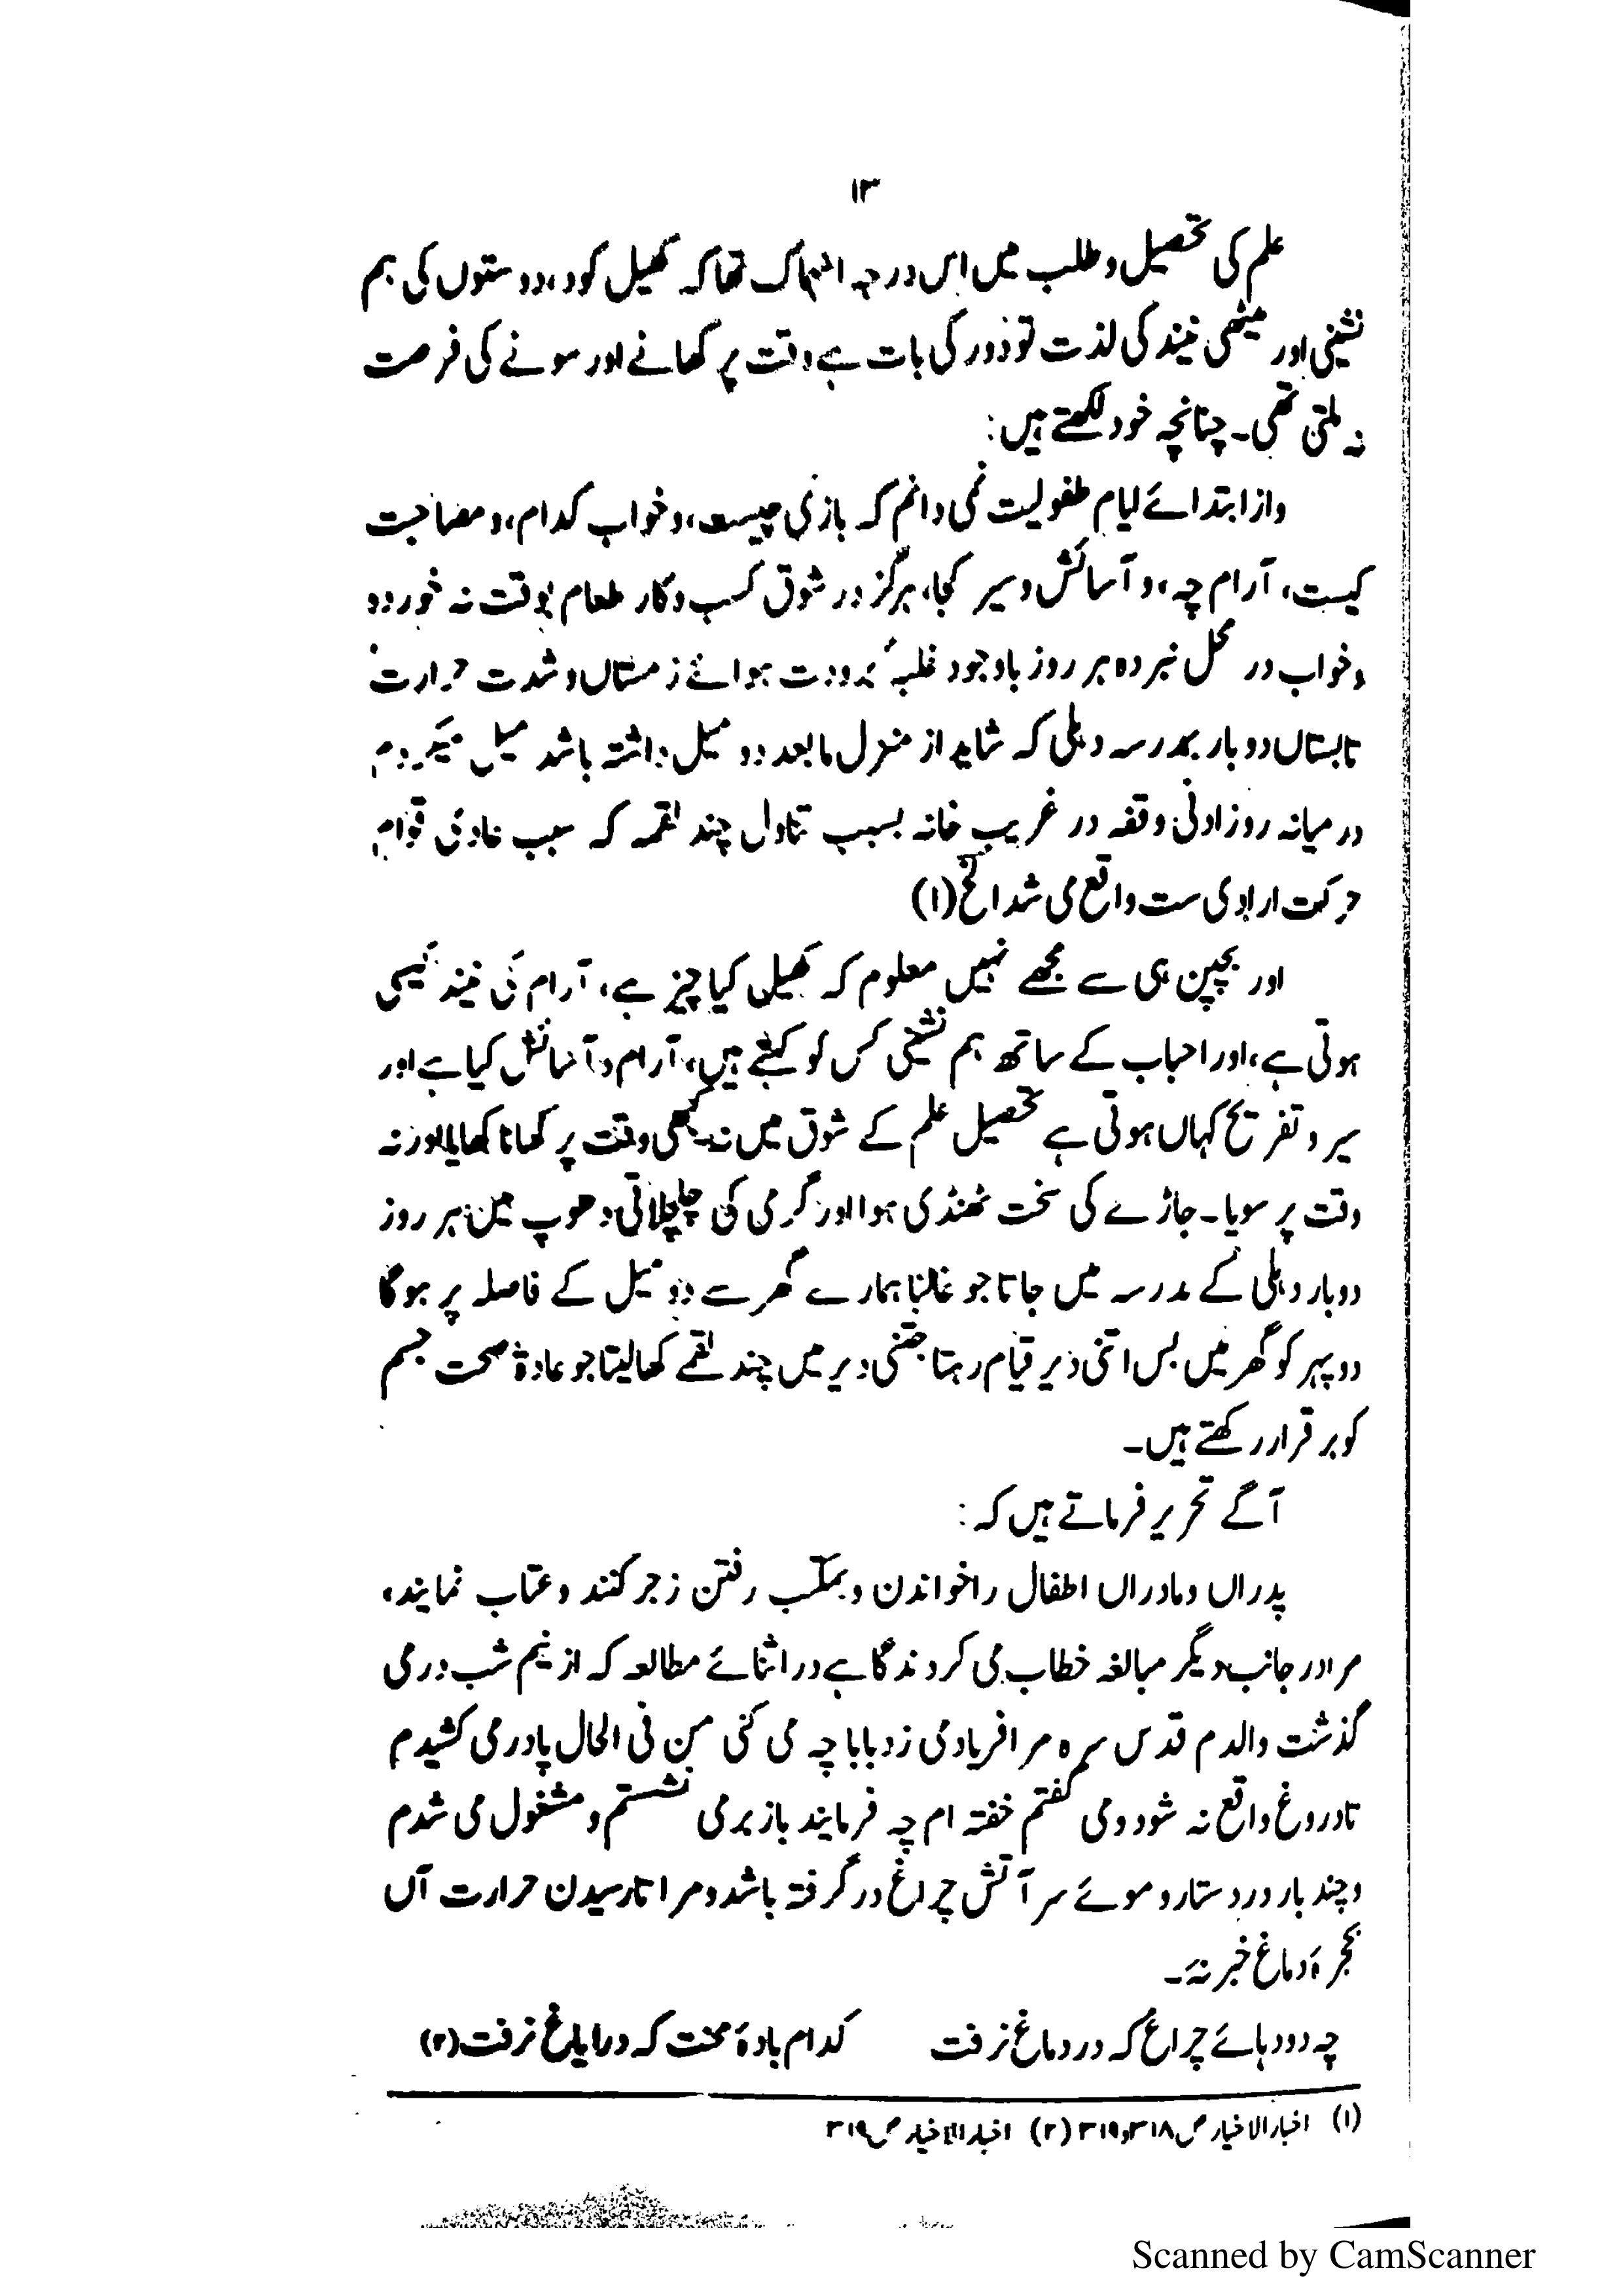 ۱۳
علم کی تحصیل و طلب میں اس درجہ انہماک تھا کہ کھیل کود، دوستوں کی ہم
نشینی اور میٹھی نیند کی لذت تو دور کی بات ہے وقت پر کھانے اور سونے کی فرصت
نہ ملتی تھی۔ چنانچہ خود لکھتے ہیں:
واز ابتدائے ایام طفولیت نمی دانم کہ بازی چیست، وخواب کدام، ومصاحبت
کیست، آرام چہ، و آسائش وسیر کجا، ہرگز در شوق کسب وکار طعام بوقت نہ خوردہ
وخواب در محل نبردہ ہر روز باوجود غلبۂ برودت ہوائے زمستاں وشدت حرارت
تابستاں دوبار بمدرسہ دہلی کہ شاید از منزل مابعد دو میل داشتہ باشد میل میکردم
درمیانہ روز ادنیٰ وقفہ در غریب خانہ بسبب تناول چند لقمہ کہ سبب عادی قوام
حرکت ارادی ست واقع می شد الخ (۱)
اور بچپن ہی سے مجھے نہیں معلوم کہ کھیل کیا چیز ہے، آرام کی نیند کیسی
ہوتی ہے، اور احباب کے ساتھ ہم نشینی کس کو کہتے ہیں، آرام و آسائش کیا ہے اور
سیر و تفریح کہاں ہوتی ہے تحصیل علم کے شوق میں نہ کبھی وقت پر کھانا کھایا اور نہ
وقت پر سویا۔ جاڑے کی سخت ٹھنڈی ہوا اور گرمی کی چلچلاتی دھوپ میں ہر روز
دوبار دہلی کے مدرسہ میں جاتا جو غالبا ہمارے گھر سے دو میل کے فاصلہ پر ہوگا
دوپہر کو گھر میں بس اتنی دیر قیام رہتا جتنی دیر میں چند لقمے کھالیتا جو عادۃً صحت جسم
کو برقرار رکھتے ہیں۔
آگے تحریر فرماتے ہیں کہ:
پدراں ومادراں اطفال را خواندن وبمکتب رفتن زجر کنند وعتاب نمایند،
مرا در جانب دیگر مبالغہ خطاب می کردند گاہے در اثنائے مطالعہ کہ از نیم شب در می
گذشت والدم قدس سرہ مرا فریاد می زد بابا چہ می کنی من فی الحال پادر می کشیدم
تا دروغ واقع نہ شود ومی گفتم خفتہ ام چہ فرمایند باز بر می نشستم و مشغول می شدم
وچند بار در دستار وموئے سر آتش چراغ در گرفتہ باشد ومرا تا رسیدن حرارت آں
بحجرۂ دماغ خبر نہ۔
چہ دودہائے چراغ کہ در دماغ نرفت کدام بادۂ محنت کہ در ایاغ نرفت (۲)
(۱) اخبار الاخیار ص ۳۱۸ و ۳۱۹ (۲) اخبار الاخیار ص ۳۱۹
Scanned by CamScanner